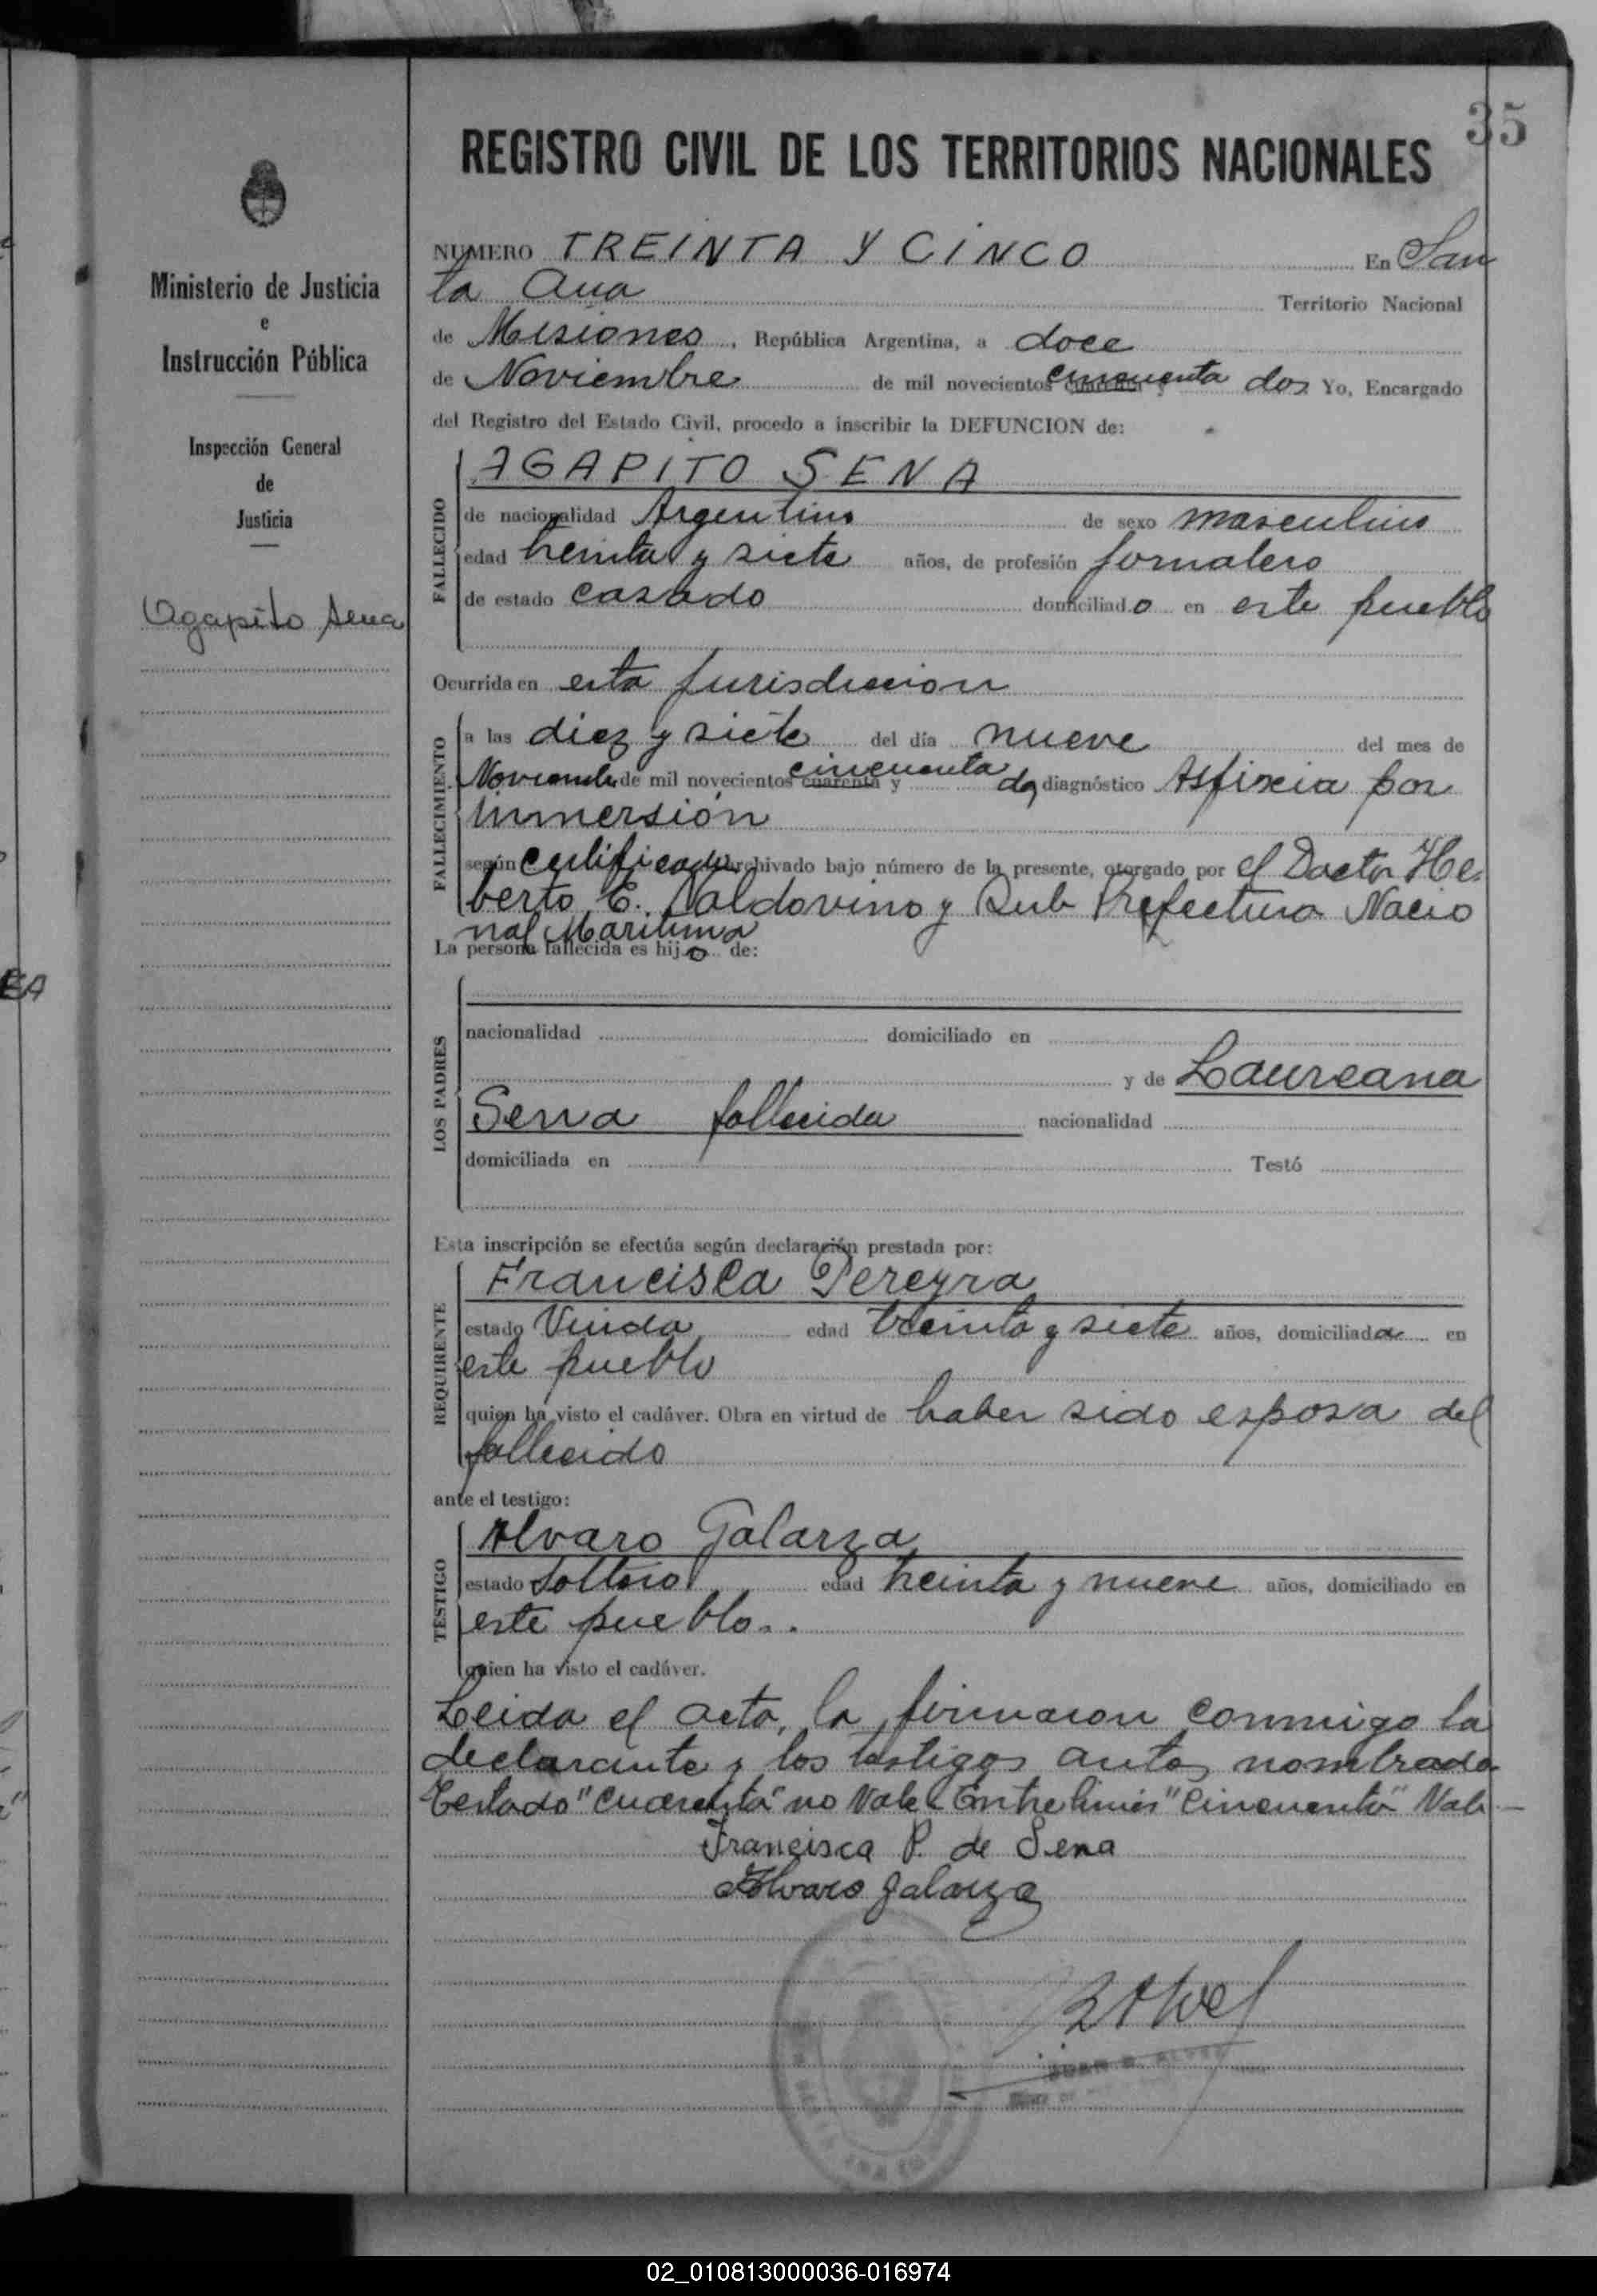 35
REGISTRO CIVIL DE LOS TERRITORIOS NACIONALES
Ministerio de Justicia
e
Instrucción Pública
Inspección General
de
Justicia
Agapito Sena
EA
NUMERO TREINTA Y CINCO En San
ta Ana Territorio Nacional
de Misiones, República Argentina, a doce
de Noviembre de mil novecientos cuarenta y cincuenta dos Yo, Encargado
del Registro del Estado Civil, procedo a inscribir la DEFUNCION de:
FALLECIDO
AGAPITO SENA
de nacionalidad Argentino de sexo masculino
edad treinta y siete años, de profesión Jornalero
de estado casado domiciliado en este pueblo
Ocurrida en esta Jurisdiccion
FALLECIMIENTO
a las diez y siete del día nueve del mes de
Noviembre de mil novecientos cuarenta y cincuenta dos diagnóstico Asfixia por
inmersión
según certificado archivado bajo número de la presente, otorgado por el Doctor He
berto E. Valdovino y Sub Prefectura Nacio
nal Maritima
La persona fallecida es hijo de:
LOS PADRES
nacionalidad domiciliado en
y de Laureana
Sena fallecida nacionalidad
domiciliada en Testó
Esta inscripción se efectúa según declaración prestada por:
REQUIRENTE
Francisca Pereyra
estado Viuda edad treinta y siete años, domiciliada en
este pueblo
quien ha visto el cadáver. Obra en virtud de haber sido esposa del
fallecido
ante el testigo:
TESTIGO
Alvaro Galarza
estado Soltero edad treinta y nueve años, domiciliado en
este pueblo..
quien ha visto el cadáver.
Leida el acta, la firmaron conmigo la
declarante y los testigos antes nombrados
Testado "cuarenta" no Vale Entre linias "cincuenta" Vale—
Francisca P. de Sena
Alvaro Galarza
02_010813000036-016974